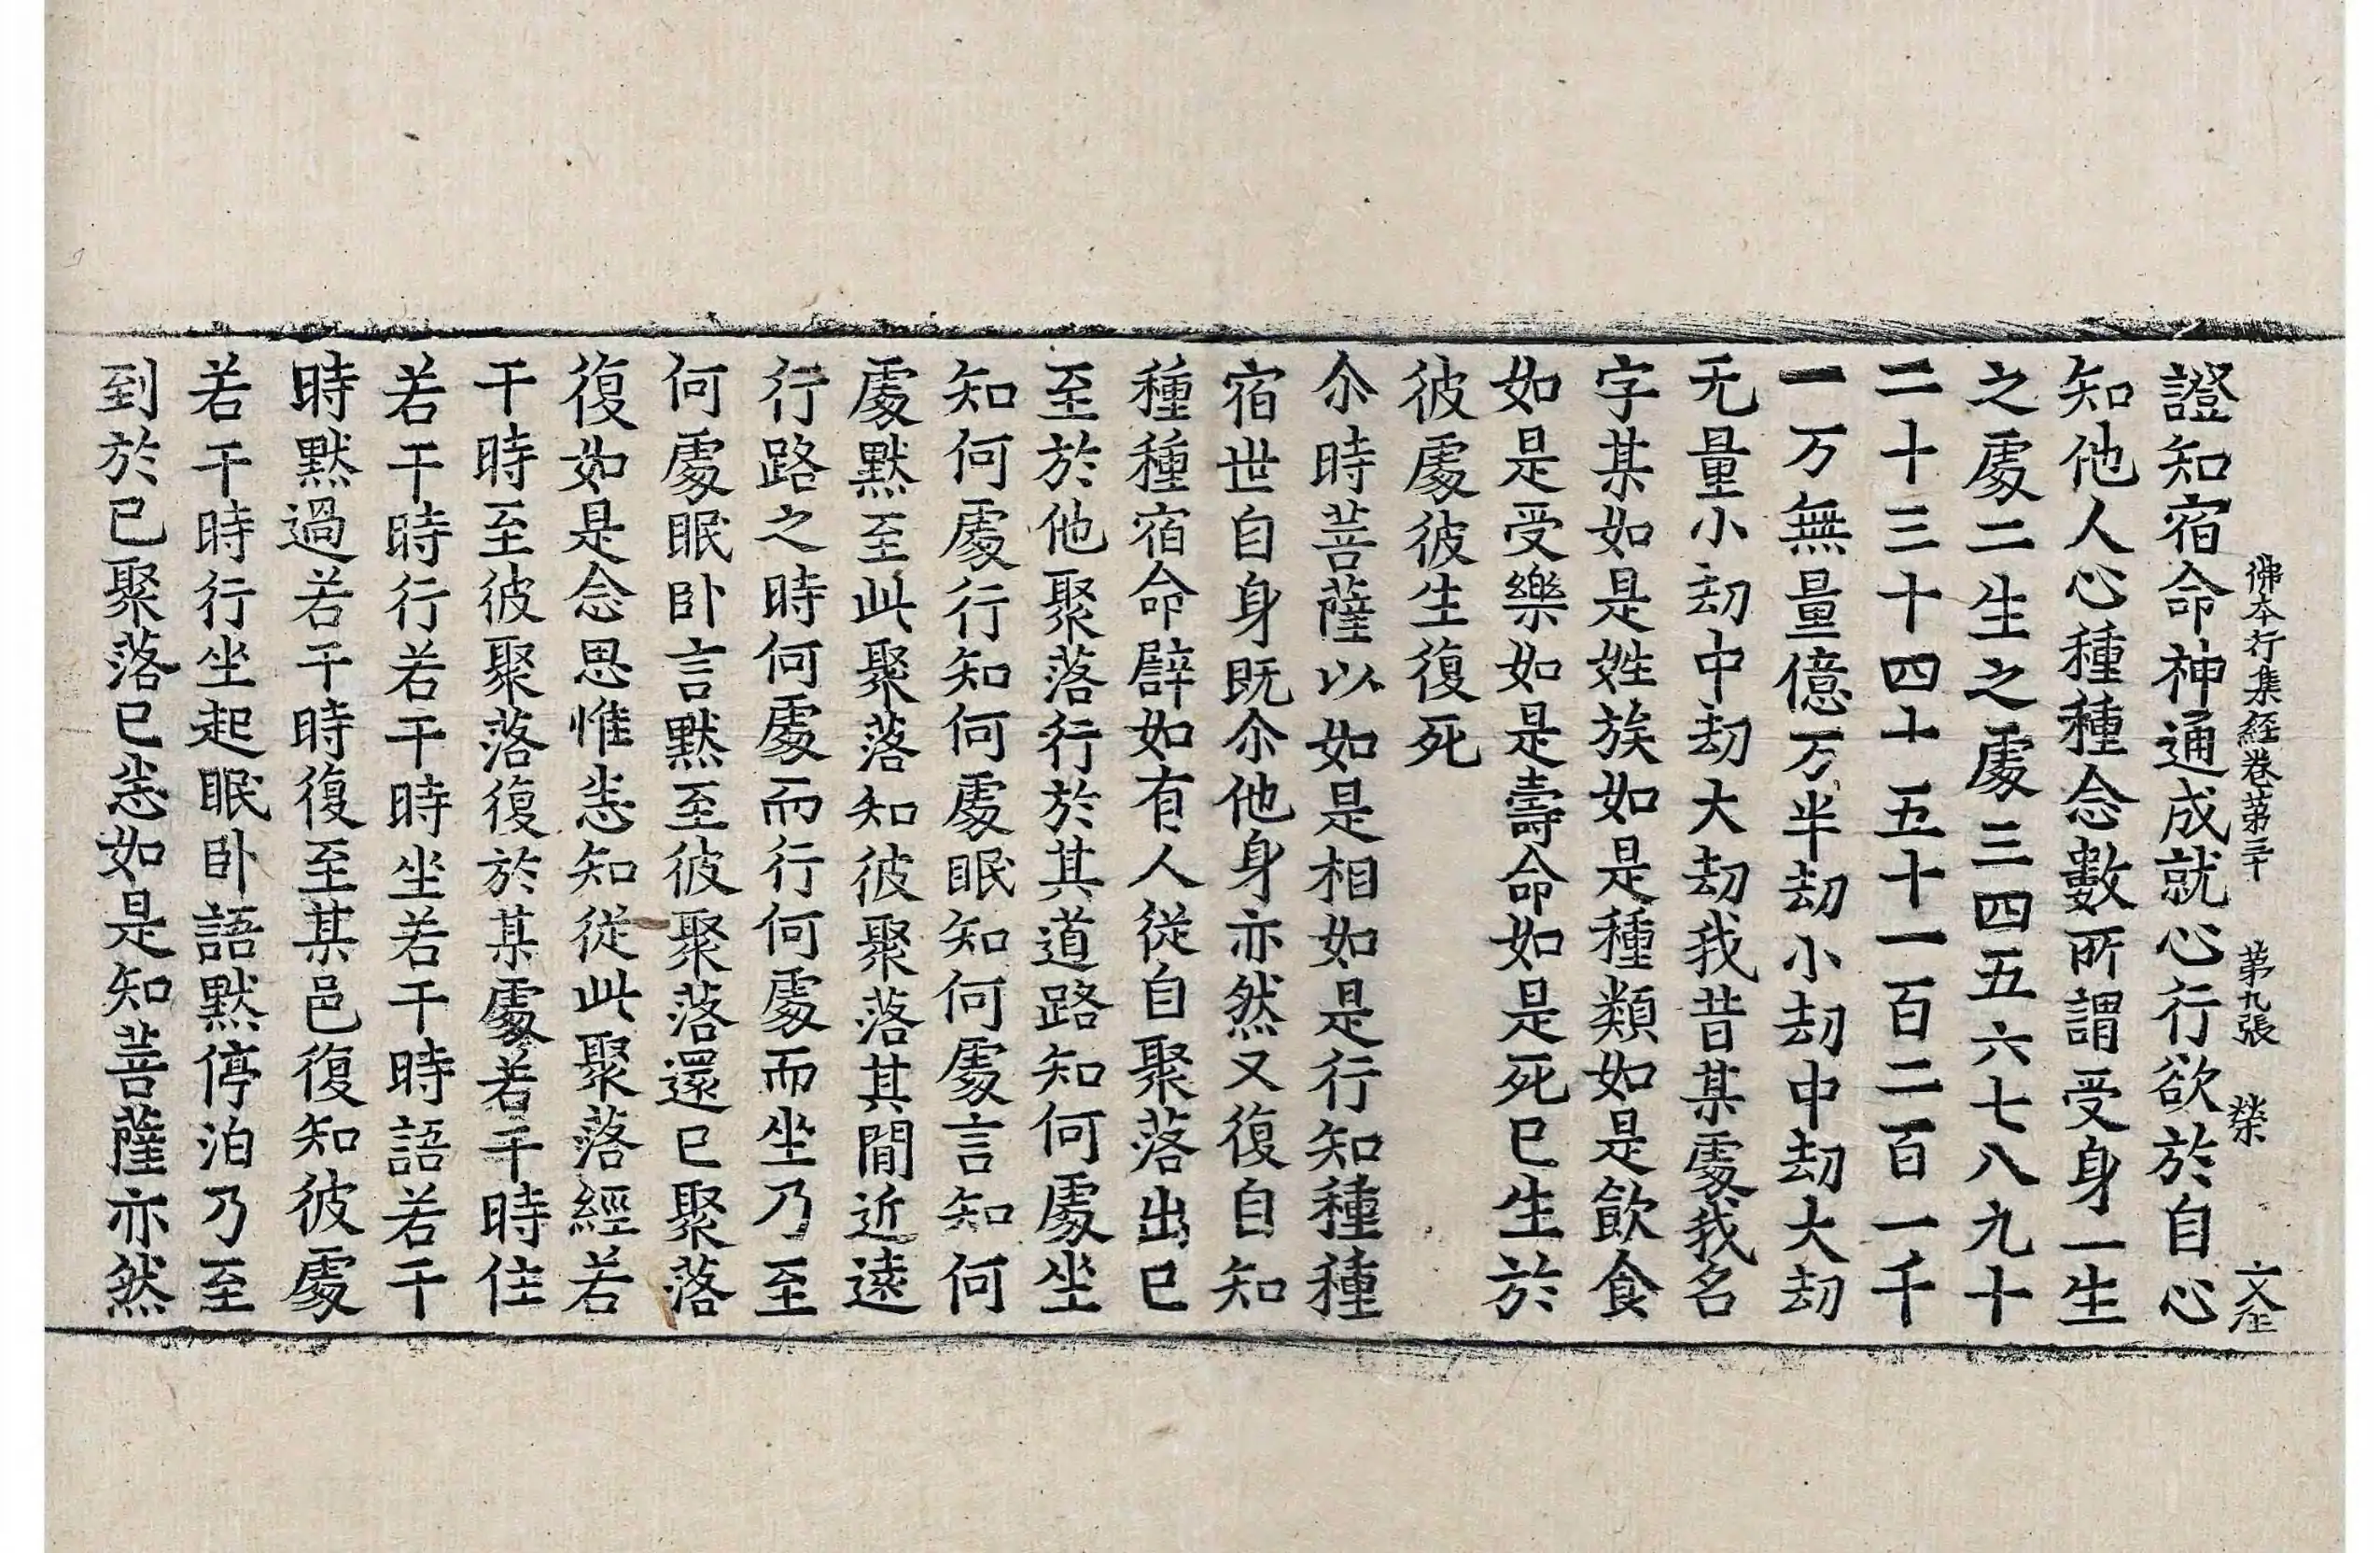 佛本行集經卷第三十　第九張　榮　文全
證知宿命神通成就心行欲於自心
知他人心種種念數所謂受身一生
之處二生之處三四五六七八九十
二十三十四十五十一百二百一千
一万無量億万半劫小劫中劫大劫
无量小劫中劫大劫我昔某處我名
字某如是姓族如是種類如是飲食
如是受樂如是壽命如是死已生於
彼處彼生復死
尒時菩薩以如是相如是行知種種
宿世自身既尒他身亦然又復自知
種種宿命譬如有人從自聚落出已
至於他聚落行於其道路知何處坐
知何處行知何處眠知何處言知何
處默至此聚落知彼聚落其間近遠
行路之時何處而行何處而坐乃至
何處眠卧言默至彼聚落還已聚落
復如是念思惟悉知從此聚落經若
干時至彼聚落復於某處若干時住
若干時行若干時坐若干時語若干
時默過若干時復至某邑復知彼處
若干時行坐起眠卧語默停泊乃至
到於已聚落已悉如是知菩薩亦然